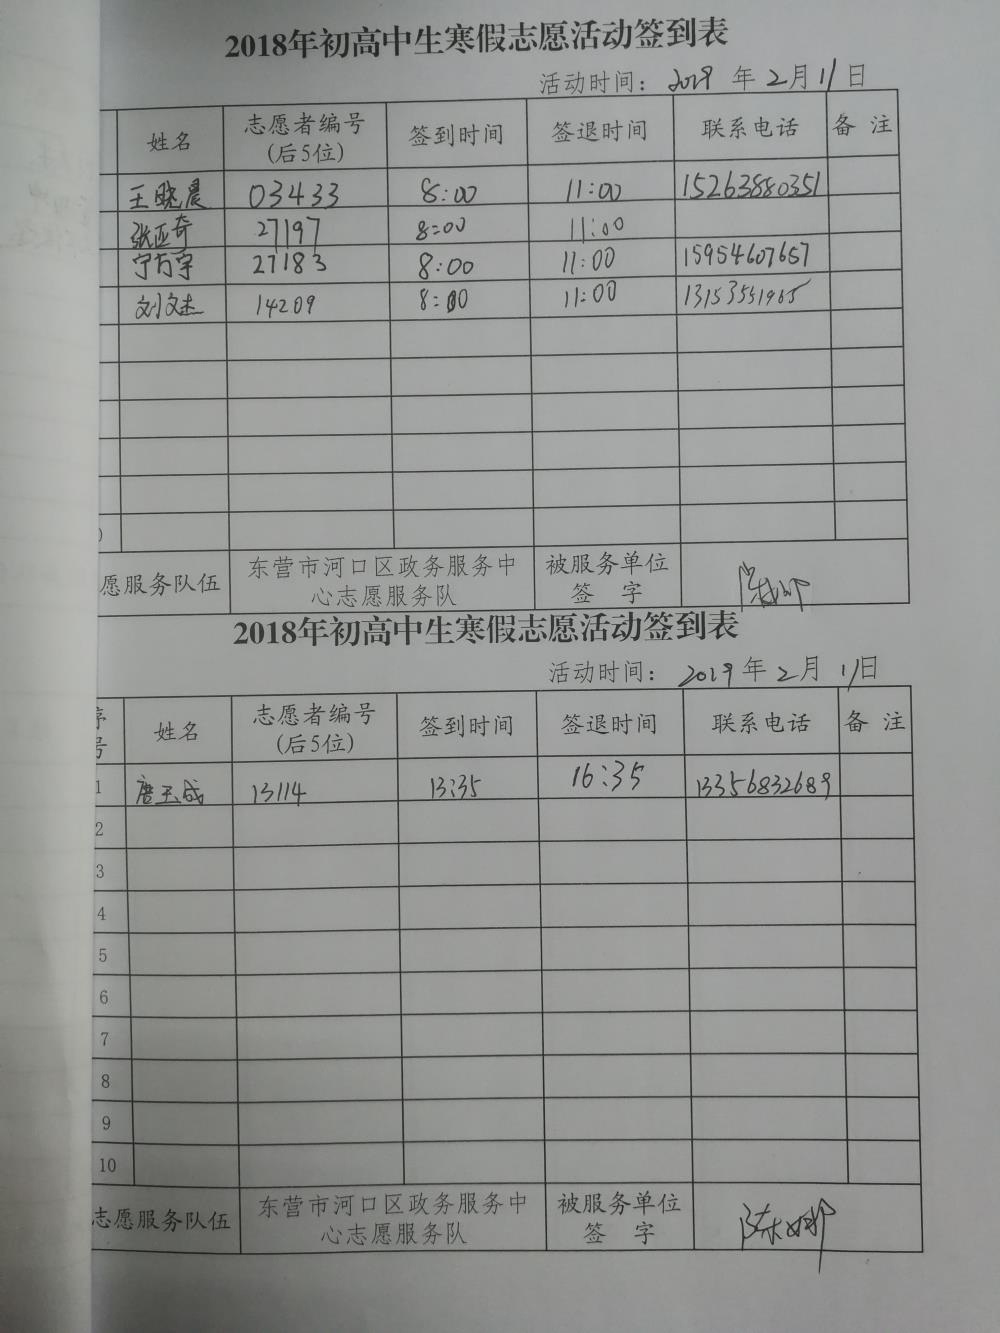 2018年初高中生寒假志愿活动签到表
活动时间: 2019 年 2 月 11 日
姓名 志愿者编号 (后5位) 签到时间 签退时间 联系电话 备 注
王晓晨 03433 8:00 11:00 15263880351
张亚奇 27197 8:00 11:00
宁方宇 27183 8:00 11:00 15954607657
刘文杰 14209 8:00 11:00 13153551965
愿服务队伍 东营市河口区政务服务中 被服务单位
心志愿服务队 签 字
2018年初高中生寒假志愿活动签到表
活动时间: 2019 年 2 月 11 日
序号 姓名 志愿者编号 (后5位) 签到时间 签退时间 联系电话 备 注
1 唐玉成 13114 13:35 16:35 13356832689
2
3
4
5
6
7
8
9
10
志愿服务队伍 东营市河口区政务服务中 被服务单位
心志愿服务队 签 字